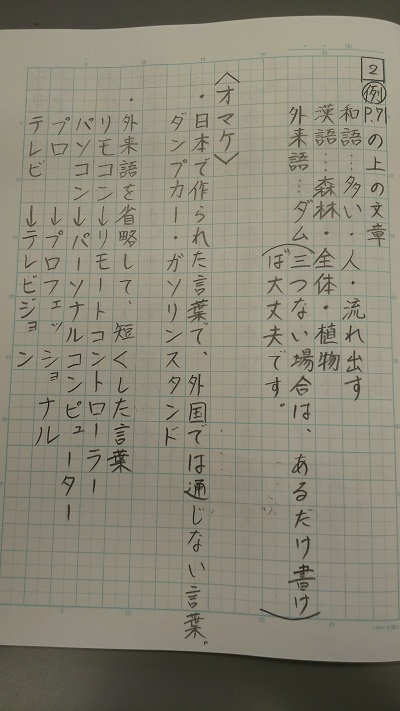 2
例
P.71の上の文章
和語…多い・人・流れ出す
漢語…森林・全体・植物
外来語…ダム(三つない場合は、あるだけ書け
ば大丈夫です。)
〈オマケ〉
・日本で作られた言葉で、外国では通じない言葉。
ダンプカー・ガソリンスタンド
・外来語を省略して、短くした言葉
リモコン→リモートコントローラー
パソコン→パーソナルコンピューター
プロ→プロフェッショナル
テレビ→テレビジョン